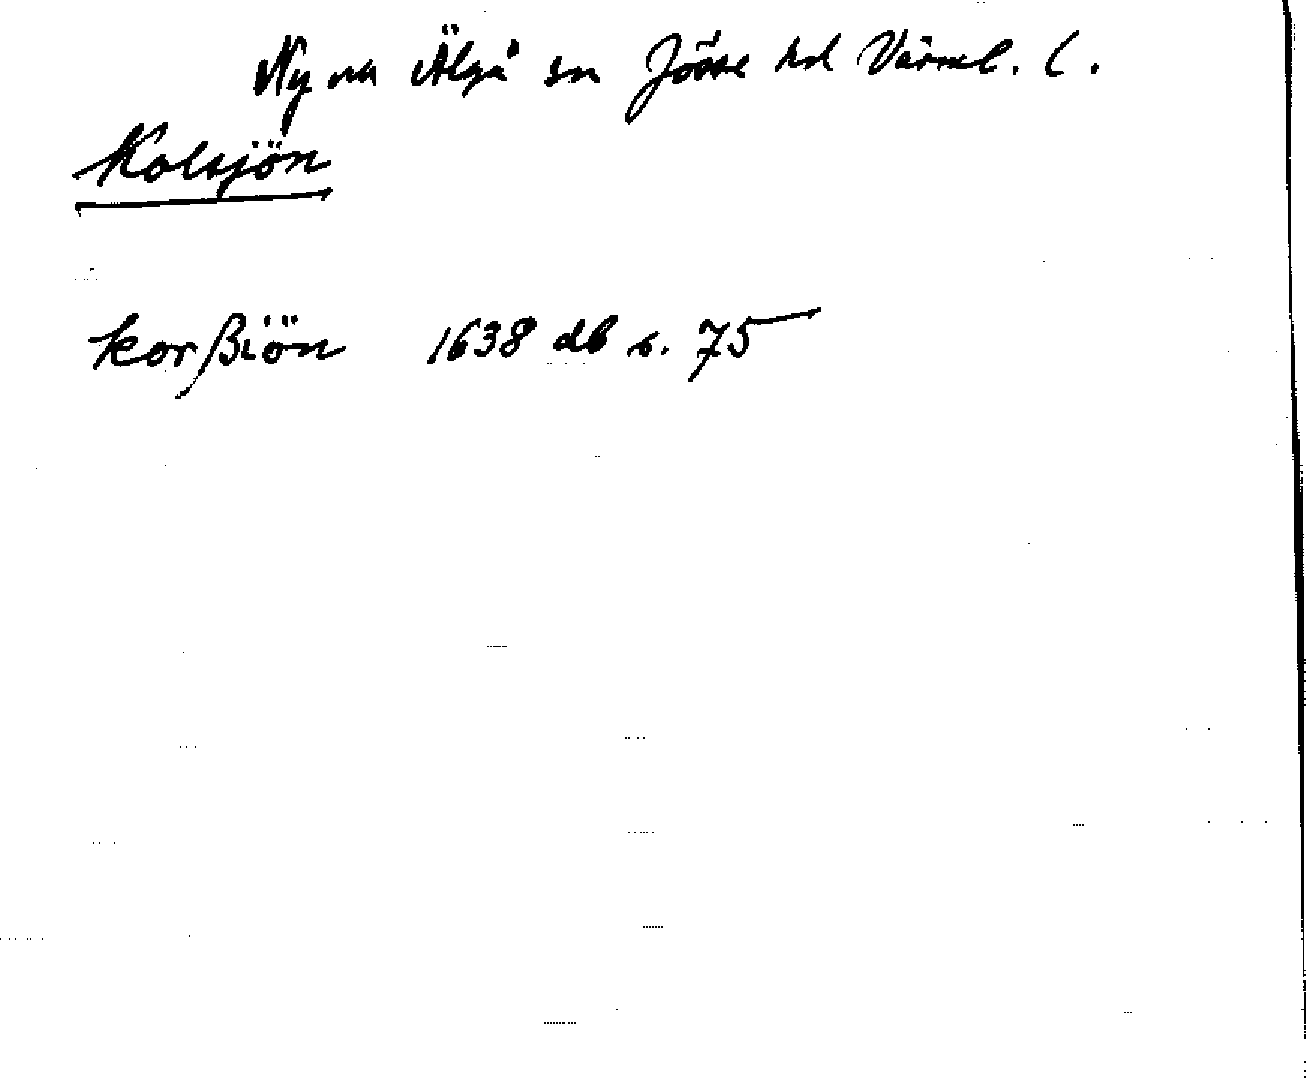 Ny na Älgå sn Jösse hd Värml. l.
Kolsjön
korßiön 1638 db s. 75